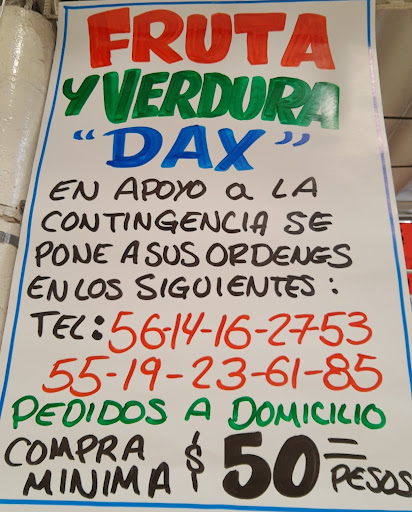 FRUTA
Y VERDURA
"DAX"
EN APOYO a LA
CONTINGENCIA SE
PONE A SUS ORDENES
EN LOS SIGUIENTES:
TEL: 56-14-16-27-53
55-19-23-61-85
PEDIDOS A DOMICILIO
COMPRA MINIMA $50= PESOS